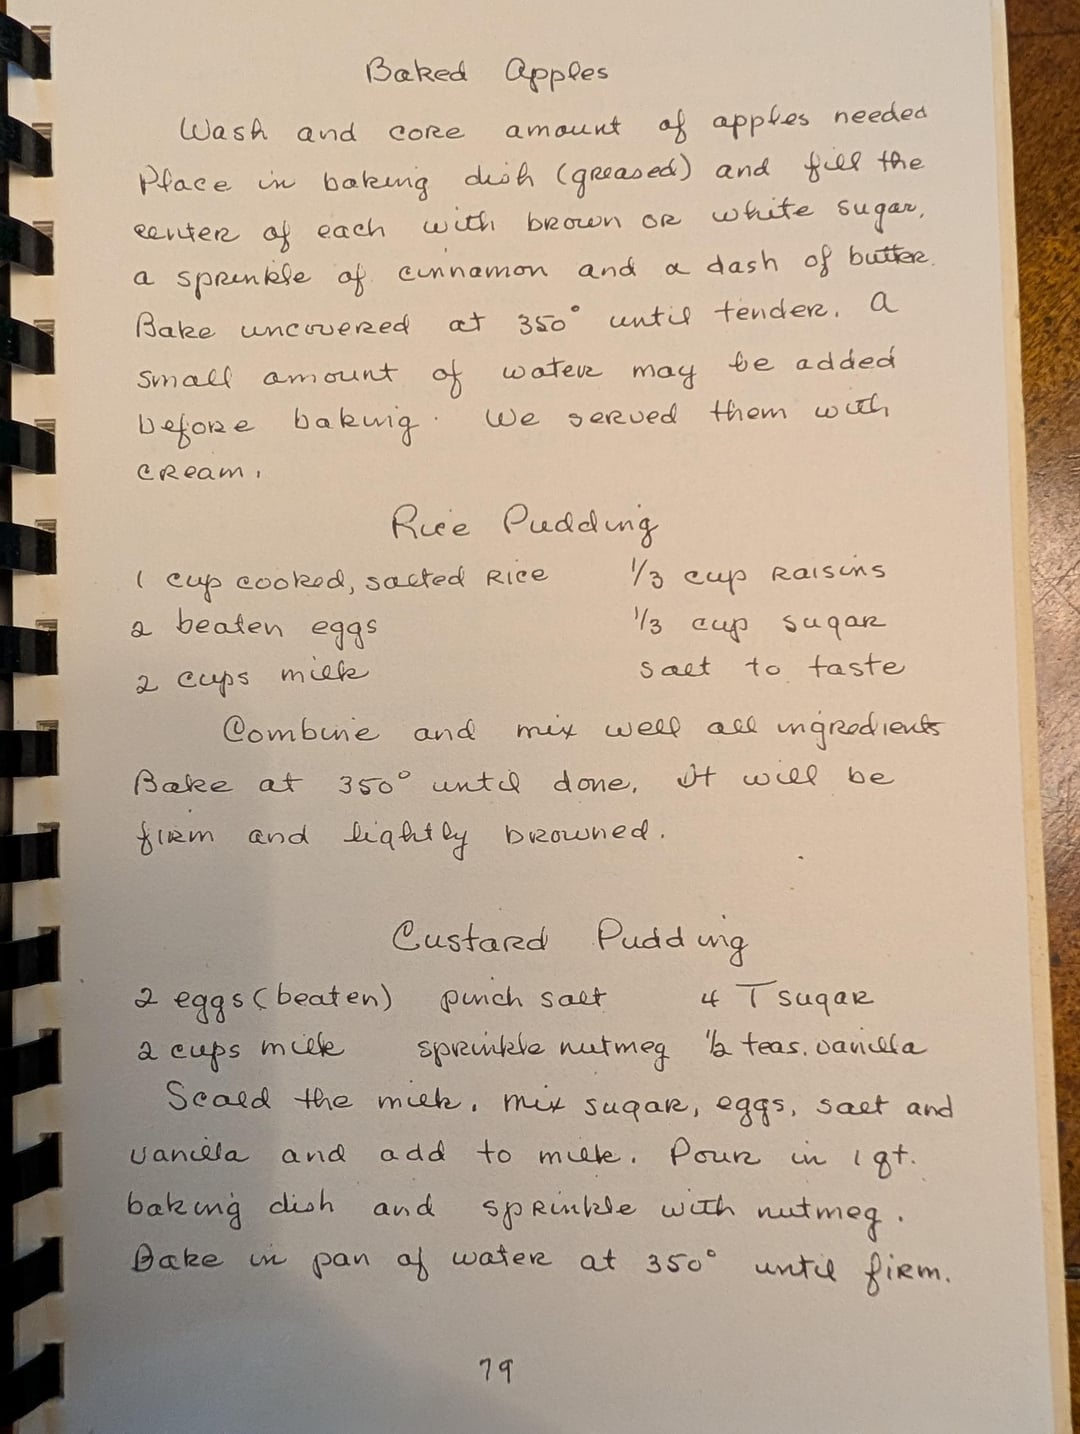 Baked Apples
Wash and core amount of apples needed
Place in baking dish (greased) and fill the
center of each with brown or white sugar,
a sprinkle of cinnamon and a dash of butter.
Bake uncovered at 350° until tender. A
small amount of water may be added
before baking. We served them with
cream.
Rice Pudding
1 cup cooked, salted rice 1/3 cup raisins
2 beaten eggs 1/3 cup sugar
2 cups milk salt to taste
Combine and mix well all ingredients
Bake at 350° until done. It will be
firm and lightly browned.
Custard Pudding
2 eggs (beaten) pinch salt 4 T sugar
2 cups milk sprinkle nutmeg 1/2 teas. vanilla
Scald the milk. Mix sugar, eggs, salt and
vanilla and add to milk. Pour in 1 qt.
baking dish and sprinkle with nutmeg.
Bake in pan of water at 350° until firm.
79